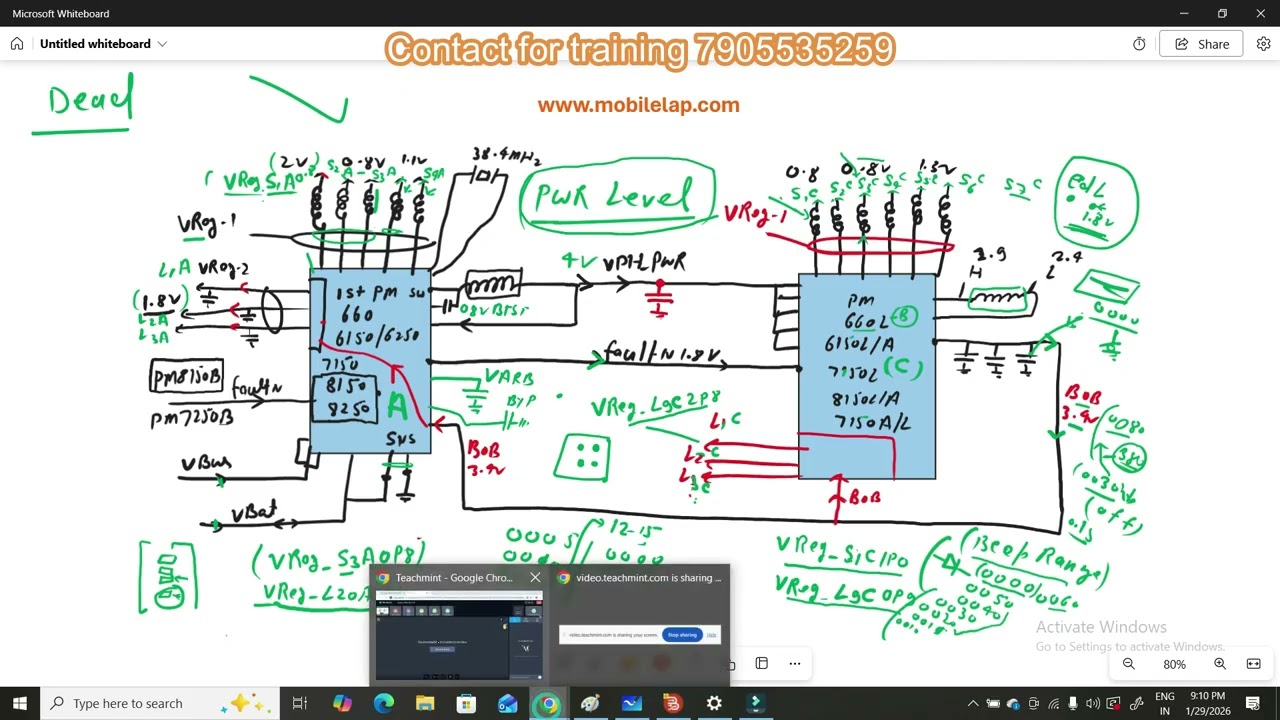 Microsoft Whiteboard
Untitled whiteboard
Share
Contact for training 7905535259
www.mobilelap.com
Dead
PWR Level
38.4MHz
(2V) 0.8V 1.1V
VReg-S1A
S3A S4A
VReg-1
L1A VReg-2
(1.8V)
L2A
L3A
1st PM SW
660
6150/6250
7150
8150
8250
A
SYS
PM8150B
faultN
PM7250B
VBus
VBat
4V VPH_PWR
faultN 1.8V
VARB
BYP
BOB
3.9V
VReg_L9C2P8
L1C
L2C
L3C
VReg-1
0.8 0.8V 1.3V
S1C S2C S3C S4C S5C S6C S7C
PM
660L-B
6150L/A
7150L (C)
8150L/A
7150A/L
BOB
BOB
3.9V
edl
1.8V
(off)
(VReg_S3A0P8)
VReg-L20A
0005
12-15
0000
VReg_S1C1P0
VReg_L9C0P9
(Beep Range)
Teachmint - Google Chro...
video.teachmint.com is sharing ...
video.teachmint.com is sharing your screen.
Stop sharing
Hide
Activate Windows
Go to Settings to activate Windows.
80%
Type here to search
ENG
IN
9:10 PM
1/29/2026